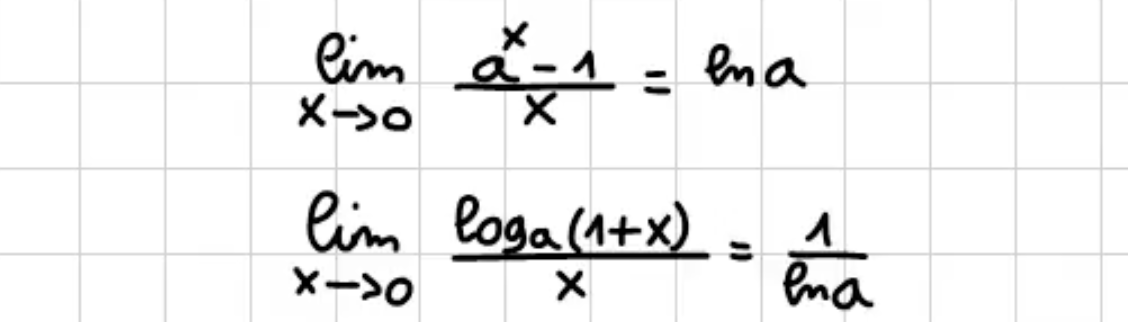 lim x→0 (a^x - 1)/x = ln a
lim x→0 (log_a(1+x))/x = 1/(ln a)